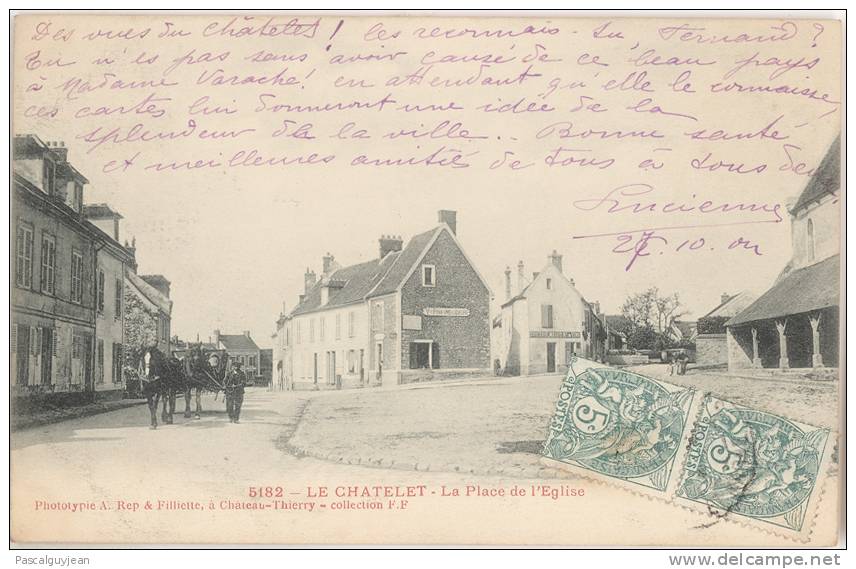 Des vues du châtelet! les reconnais-tu, Fernand?
Tu n'es pas sans avoir causé de ce beau pays
à Madame Varache! en attendant qu'elle le connaisse,
ces cartes lui donneront une idée de la
splendeur d la ville.. Bonne santé
et meilleures amitiés de tous à tous deux
Lucienne
27.10.04
5182 - LE CHATELET - La Place de l'Eglise
Phototypie A. Rep & Filliette, à Chateau-Thierry - collection F.F
5c
POSTES
5c
POSTES
Pascalguyjean
delcampe.net